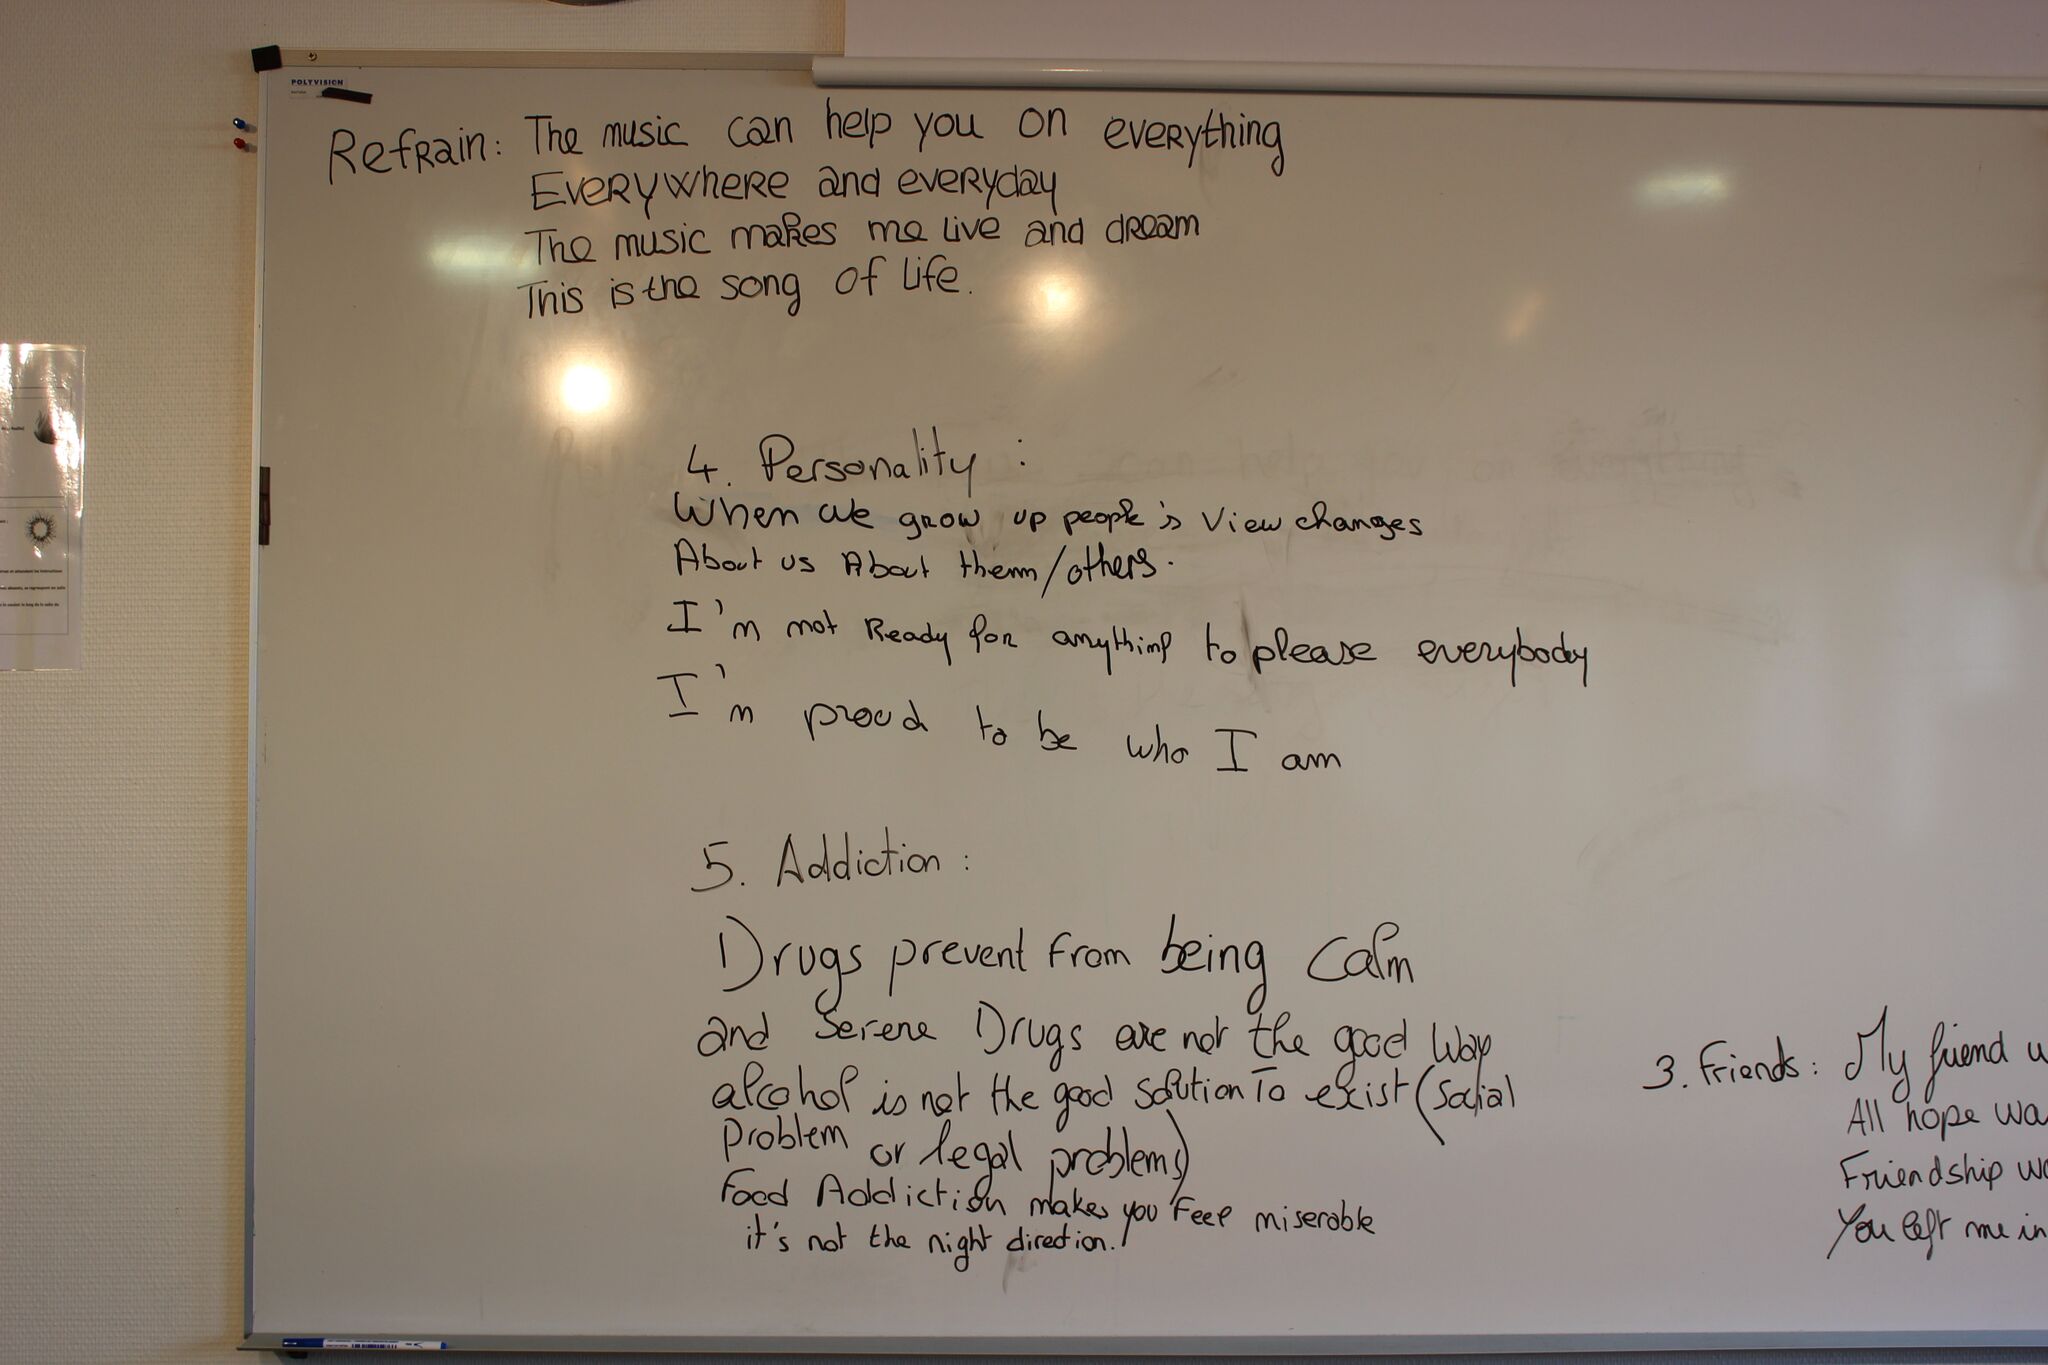 POLYVISION
Refrain: The music can help you on everything
Everywhere and everyday
The music makes me live and dream
This is the song of life.
4. Personality :
When we grow up people's view changes
About us About them/others.
I'm not Ready for anything to please everybody
I'm proud to be who I am
5. Addiction :
Drugs prevent from being calm
and serene Drugs are not the good way
alcohol is not the good solution To exist (social
problem or legal problems)
Food Addiction makes you feel miserable
it's not the right direction.
3. Friends : My friend
All hope
Friendship
You left me in